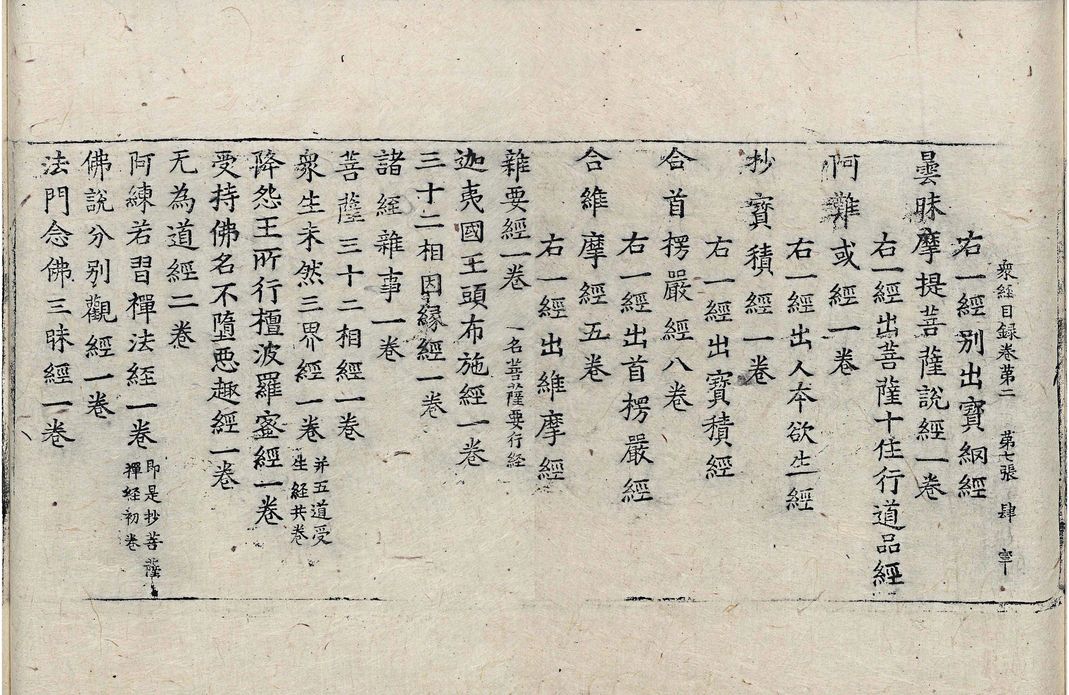 衆経目録卷第二 第七張 肆 宰
右一經別出寶網經
曇昧摩提菩薩說經一卷
右一經出菩薩十住行道品經
阿難或經一卷
右一經出人本欲生經
抄寶積經一卷
右一經出寶積經
合首楞嚴經八卷
右一經出首楞嚴經
合維摩經五卷
右一經出維摩經
雜要經一卷 一名菩薩要行経
迦夷國王頭布施經一卷
三十二相因縁經一卷
諸經雜事一卷
菩薩三十二相經一卷
衆生未然三界經一卷 并五道受
生經共卷
降怨王所行檀波羅蜜經一卷
受持佛名不墮惡趣經一卷
无為道經二卷
阿練若習禪法經一卷 即是抄菩薩
禪経初卷
佛說分別觀經一卷
法門念佛三昧經一卷